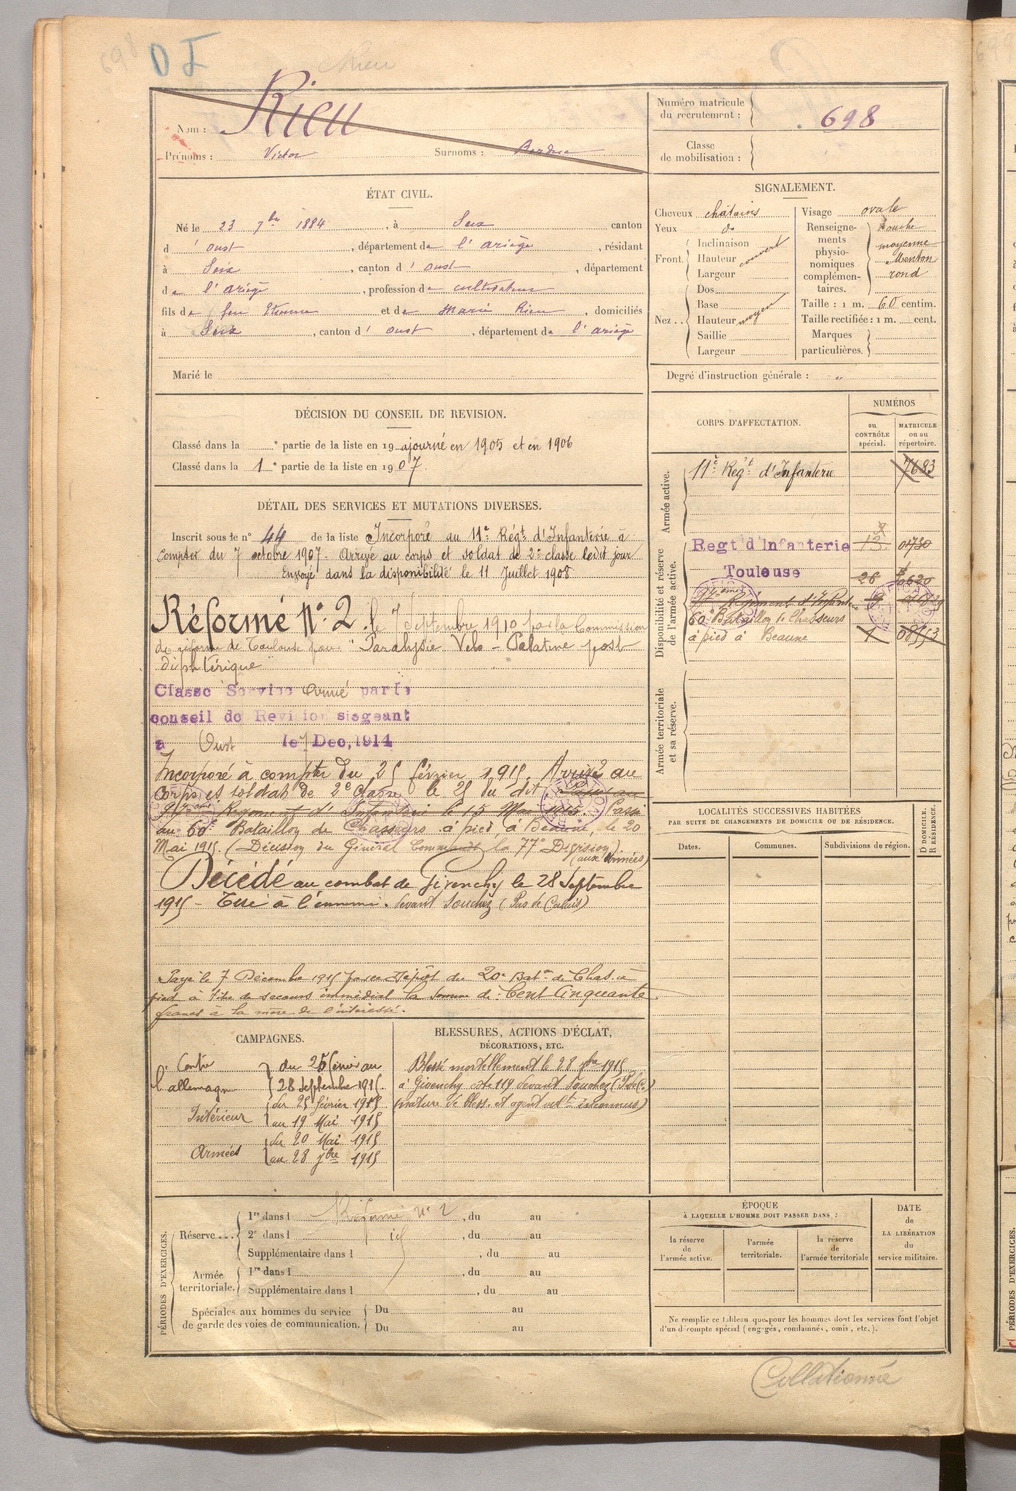 698
D I
Rieu
Nom : Rieu
Prénoms : Victor Surnoms :
Numéro matricule du recrutement : 698
Classe de mobilisation :
ÉTAT CIVIL.
Né le 23 7bre 1884, à Seix canton
d'oust, département de l'ariège, résidant
à Seix, canton d'oust, département
de l'ariège, profession de cultivateur
fils de feu Etienne et de Marie Rieu, domiciliés
à Seix, canton d'oust, département de l'ariège
Marié le
SIGNALEMENT.
Cheveux châtains
Yeux do
Front. Inclinaison Hauteur Largeur couvert
Nez.. Dos Base Hauteur Saillie Largeur moyen
Visage ovale
Renseignements physionomiques complémentaires. Bouche moyenne Menton rond
Taille : 1 m. 60 centim.
Taille rectifiée : 1 m. cent.
Marques particulières.
Degré d'instruction générale : "
DÉCISION DU CONSEIL DE REVISION.
Classé dans la e partie de la liste en 19 ajourné en 1905 et en 1906
Classé dans la 1e partie de la liste en 1907.
DÉTAIL DES SERVICES ET MUTATIONS DIVERSES.
Inscrit sous le n° 44 de la liste Incorporé au 11e Régt d'Infanterie à
compter du 7 octobre 1907. Arrivé au corps et soldat de 2e classe ledit jour
Envoyé dans la disponibilité le 11 Juillet 1908
Réformé N° 2 le 7 septembre 1910 par la Commission
de réforme de Toulouse pour "Paralysie Velo-Palatine post
diphtérique"
Classé Service armé par le
conseil de Revision siégeant
à Oust le 7 Dec, 1914
Incorporé à compter du 25 février 1915. Arrivé au
corps et soldat de 2e classe le 25 du dit
Régiment d'Infanterie le 15 Mai 1915. Passé
au 60e Bataillon de Chasseurs à pied, à Beaune, le 20
Mai 1915. (Décision du Général Commandt la 77e Division)
(aux Armées)
Décédé au combat de Givenchy le 28 Septembre
1915 - Tué à l'ennemi. devant Souchez (Pas de Calais)
Payé le 7 Décembre 1915 par le Dépôt du 20e Batn de Chas. à
pied à titre de secours immédiat la somme de Cent Cinquante
francs à la mère de l'intéressé.
CORPS D'AFFECTATION.
NUMÉROS
au CONTRÔLE spécial.
MATRICULE ou au répertoire.
Armée active.
11e Régt d'Infanterie 7683
Disponibilité et réserve de l'armée active.
Regt d'Infanterie
Toulouse
Régiment d'Infant
60e Bataillon de Chasseurs
à pied à Beaune 1
Armée territoriale et sa réserve.
LOCALITÉS SUCCESSIVES HABITÉES
PAR SUITE DE CHANGEMENTS DE DOMICILE OU DE RÉSIDENCE.
Dates. Communes. Subdivisions du région. D DOMICILE. R RÉSIDENCE.
CAMPAGNES.
Contre l'allemagne du 25 février au 28 Septembre 1915.
Intérieur du 25 février 1915 au 19 Mai 1915
Armées du 20 Mai 1915 au 28 7bre 1915
BLESSURES, ACTIONS D'ÉCLAT,
DÉCORATIONS, ETC.
Blessé mortellement le 28 7bre 1915
à Givenchy cote 119 devant Souchez (P. de C.)
(nature de bless. et agent vulnt inconnus)
PÉRIODES D'EXERCICES.
Réserve... 1re dans l Réformé n° 2, du au
2e dans l, du au
Supplémentaire dans l, du au
Armée territoriale. 1re dans l, du au
Supplémentaire dans l, du au
Spéciales aux hommes du service de garde des voies de communication. Du au
Du au
ÉPOQUE
À LAQUELLE L'HOMME DOIT PASSER DANS :
la réserve de l'armée active. l'armée territoriale. la réserve de l'armée territoriale
DATE de LA LIBÉRATION du service militaire.
Ne remplir ce tableau que pour les hommes dont les services font l'objet
d'un décompte spécial (engagés, condamnés, omis, etc.).
Collationné